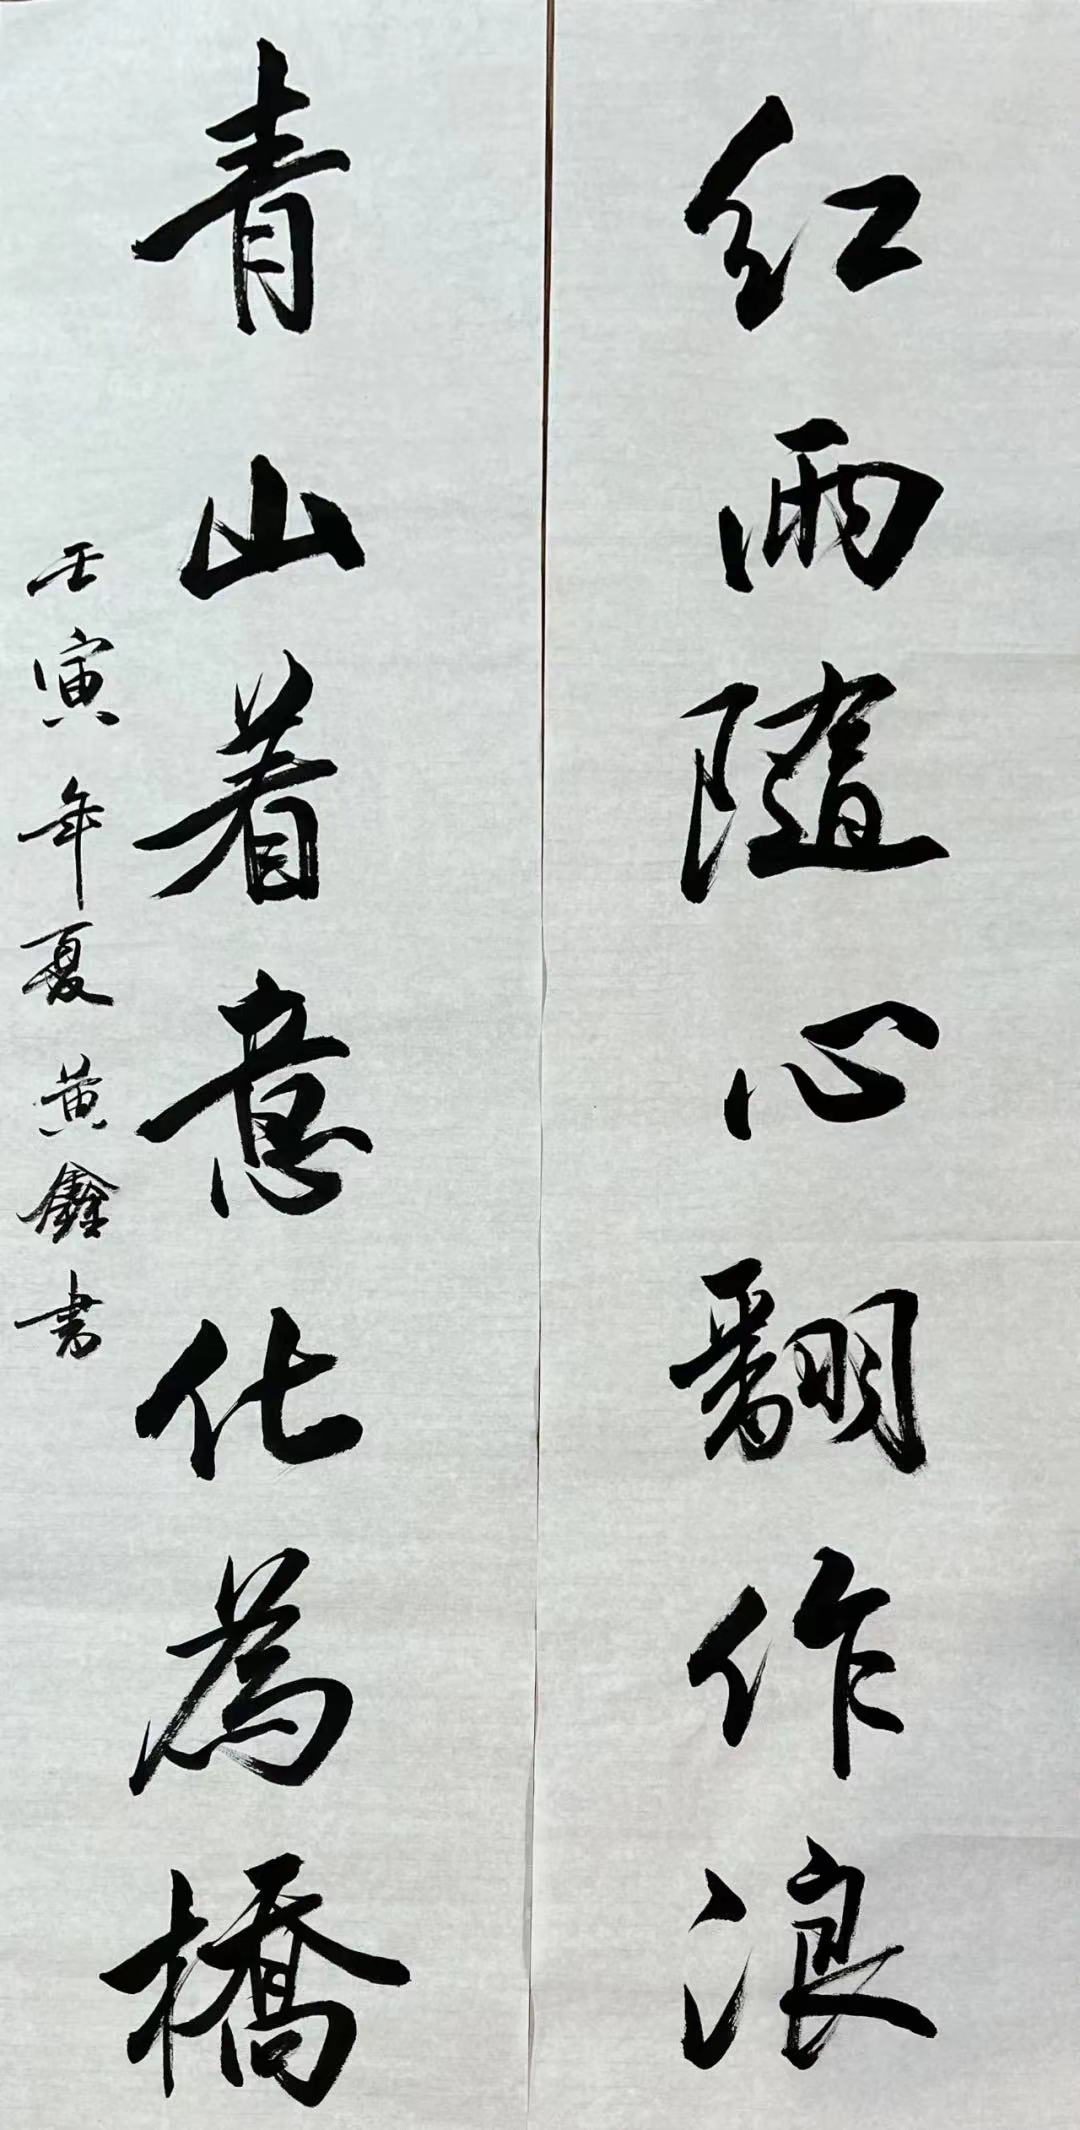 红雨隨心翻作浪
青山着意化為橋
壬寅年夏黄鑫書